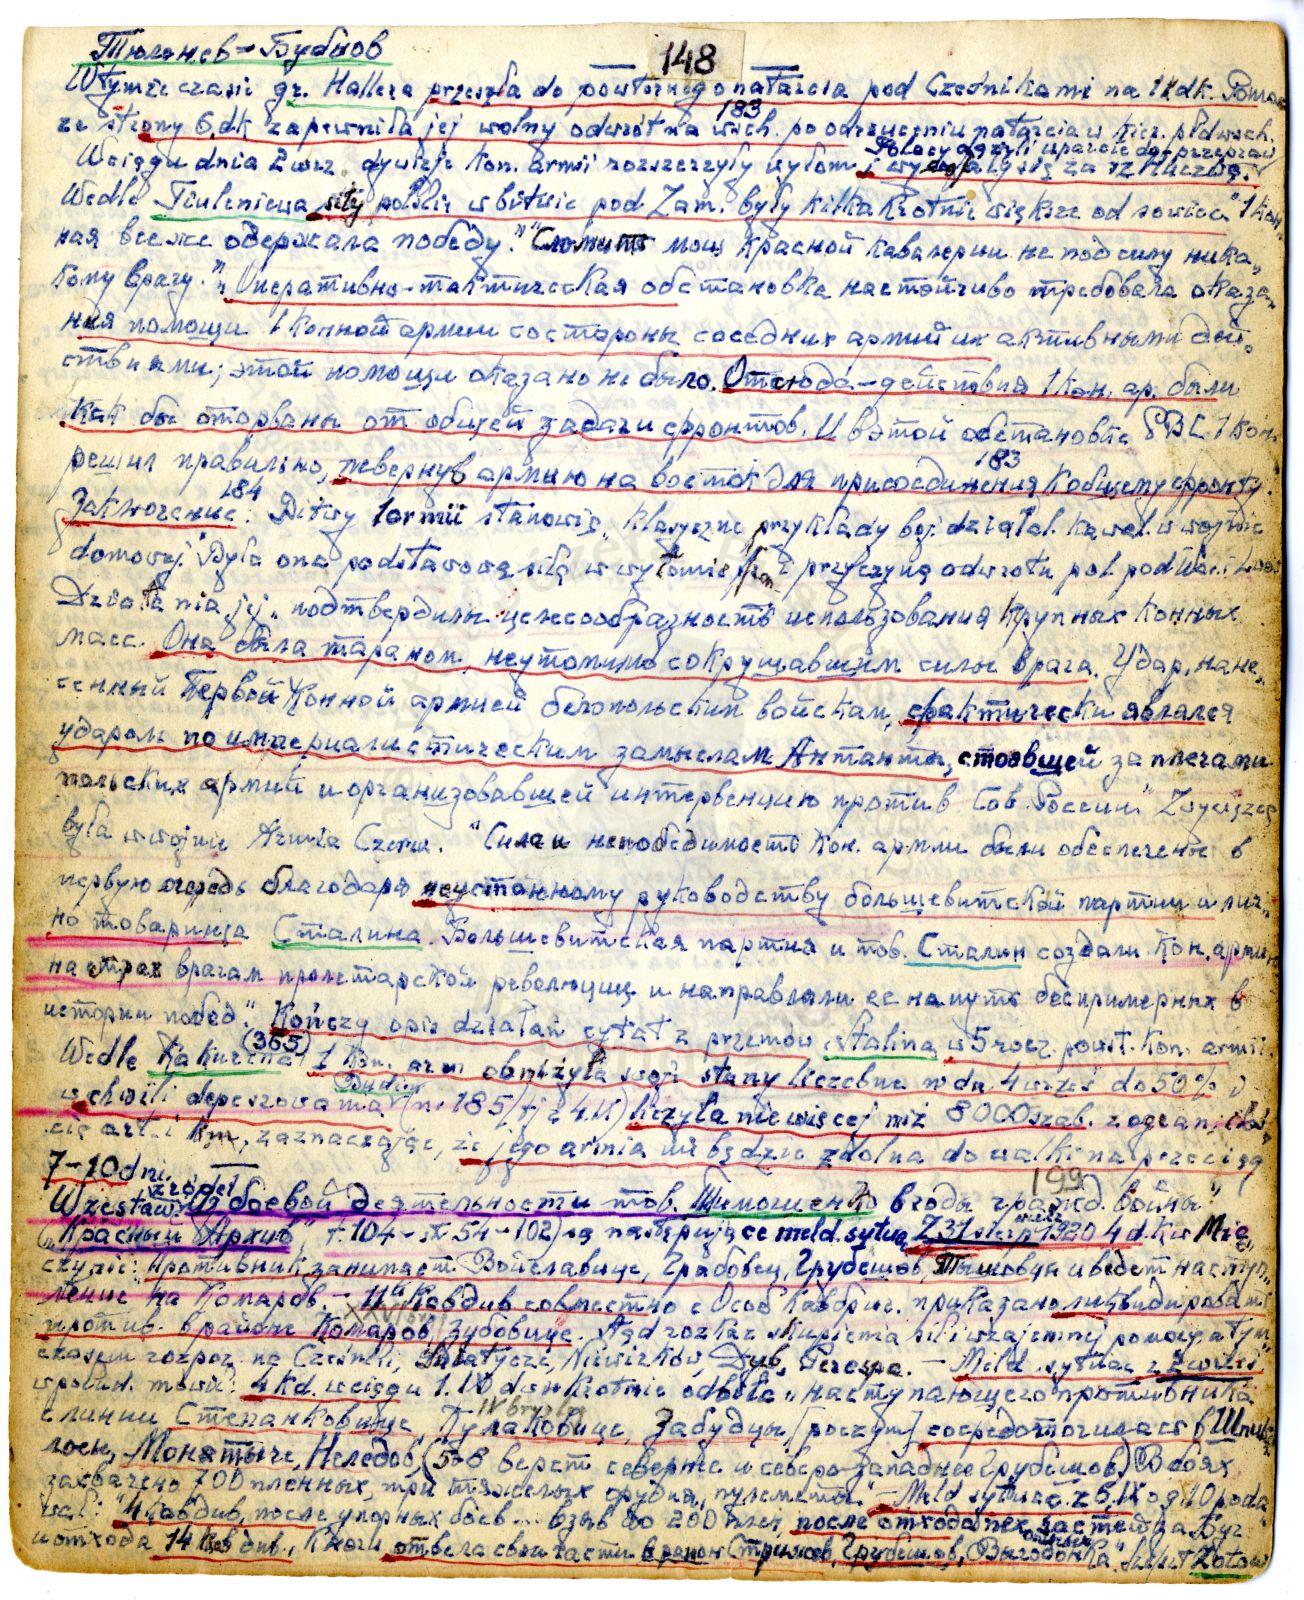 Тюленев – Бубнов
— 148 —
W tymże czasie gr. Hallera przeszła do powtórnego natarcia pod Cześnikami na 14 dk. Pomoc
ze strony 6 dk zapewniła jej wolny odwrót na wsch. po odrzuceniu natarcia w kier. płdwsch.
183
Polacy dążyli uparcie do przepraw
W ciągu dnia 2 wrz. dywizje kon. armii rozszerzyły wyłom i wydostały się za rz Huczwę.
Wedle Tiuleniewa siły polskie w bitwie pod Zam. były kilkakrotnie większe od sowiec. "1 Кон-
ная все же одержала победу." "Сломить мощь красной кавалерии не под силу ника-
кому врагу." "Оперативно-тактическая обстановка настойчиво требовала оказа-
ния помощи 1 Конной армии со стороны соседних армий их активными дей-
ствиями; этой помощи оказано не было. Отсюда – действия 1 Кон. ар. были
как бы оторваны от общей задачи фронтов. И в этой обстановке РВС 1 Кон.
решил правильно, повернув армию на восток для присоединения к общему фронту.
183
184
Заключение: Bitwy 1 armii stanowią "klasyczne przykłady boj. działal. kawal. w wojnie
domowej." Była ona podstawową siłą w wyłomie i przyczyną odwrotu pol. pod
Działania jej "подтвердили целесообразность использования крупных конных
масс. Она была тараном, неутомимо сокрушавшим силы врага. Удар, нане-
сенный Первой Конной армией белопольским войскам, фактически являлся
ударом по империалистическим замыслам Антанты, стоявшей за плечами
польских армий и организовавшей интервенцию против Сов. России." Zwycięzcą
była w wojnie Armia Czerw. "Сила и непобедимость Кон. армии были обеспечены в
первую очередь благодаря неустанному руководству большевитской партии и лич-
но товарища Сталина. Большевитская партия и тов. Сталин создали Кон. армию
на страх врагам пролетарской революции и направляли ее на путь беспримерных в
истории побед." Kończy opis działań cytat z przemów. Stalina w 5 rocz. powst. Kon. armii.
(365)
Wedle Kakurina 1 Kon. arm obniżyła swoje stany liczebne w dn 4 wrześ do 50% i
Budien
w chwili depeszowania (nr 185/ tj z 4.IX) liczyła nie więcej niż 8000 szab. z ogran. iloś-
cią art. i km, zaznaczając, że jego armia nie będzie zdolna do walki na przeciąg
7–10 dni. —
199
źródeł
W zestaw. "О боевой деятельности тов. Тимошенко в годы гражд. войны"
("Красный Архив" т. 104 – s. 54–102) są następujące meld. sytuac. Z 31 sierp 1920 4 d. K w Mie-
czynie: "Противник занимает Войславице, Грабовец, Грубешов, Тышовцы и ведет насту-
пление на Комаров. – 11й Кавдив совместно с Особ Кавбриг. приказано ликвидировать
против. в районе Комаров, Зубовице. Stąd rozkaz skupienia sił i wzajemnej pomocy a tym-
czasem rozpoz. na Cześniki, Niewirków, Dub, Perespa. – Meld. sytuac z 2 wrześ
w połudn. mówi: 4 kd. w ciągu 1.IX dwukrotnie odbiła "наступающего противника
IV bryg
с линии Стефанковице, Кулаковице, Забудцы, [poczym] сосредоточилась в
Монятыче, Нелёдов, (5–8 верст севернее и северо-западнее Грубешов) В боях
захвачено 700 пленных, три тяжелых орудия, пулеметы." – Meld sytuac. z 6.IX og. 10 poda
wał: "4 кавдив, после упорных боев ... взяв до 200 плен, после отхода пех. частей за Буг
и отхода 14 кавдив., к ночи отвела свои части в район Стрижов, Грубешов, Выгодонка." Szkic Kotow